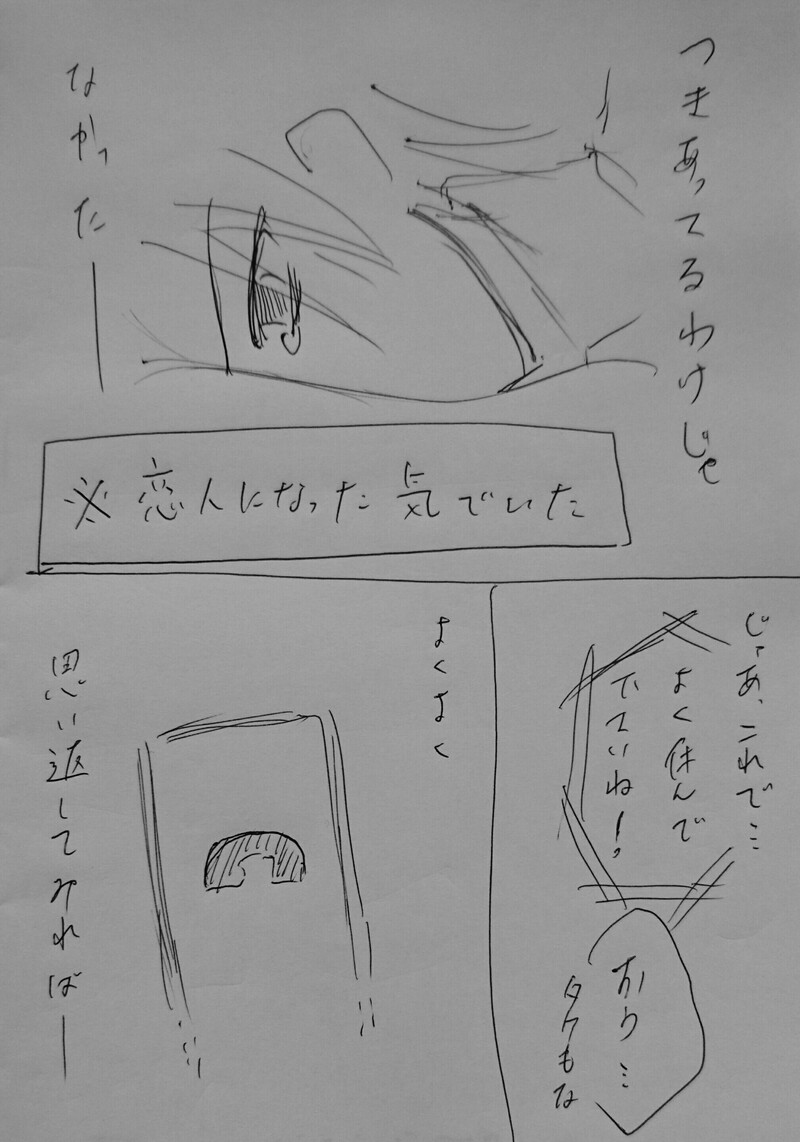 つきあってるわけじゃ
なかった―
※恋人になった気でいた
じゃあ、これで…
よく休んで
でていね!
おう…
タクもな
よくよく
思い返してみれば―